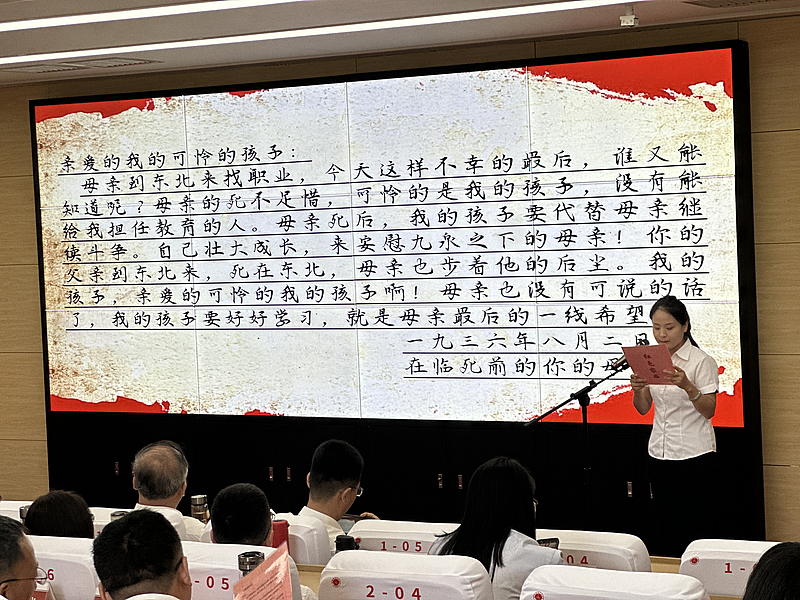 亲爱的我的可怜的孩子：
母亲到东北来找职业，今天这样不幸的最后，谁又能
知道呢？母亲的死不足惜，可怜的是我的孩子，没有能
给我担任教育的人。母亲死后，我的孩子要代替母亲继
续斗争。自己壮大成长，来安慰九泉之下的母亲！你的
父亲到东北来，死在东北，母亲也步着他的后尘。我的
孩子，亲爱的可怜的我的孩子啊！母亲也没有可说的话
了，我的孩子要好好学习，就是母亲最后的一线希望
一九三六年八月二日
在临死前的你的母
红色家书
1-05
04
1-
6
-05
2-04